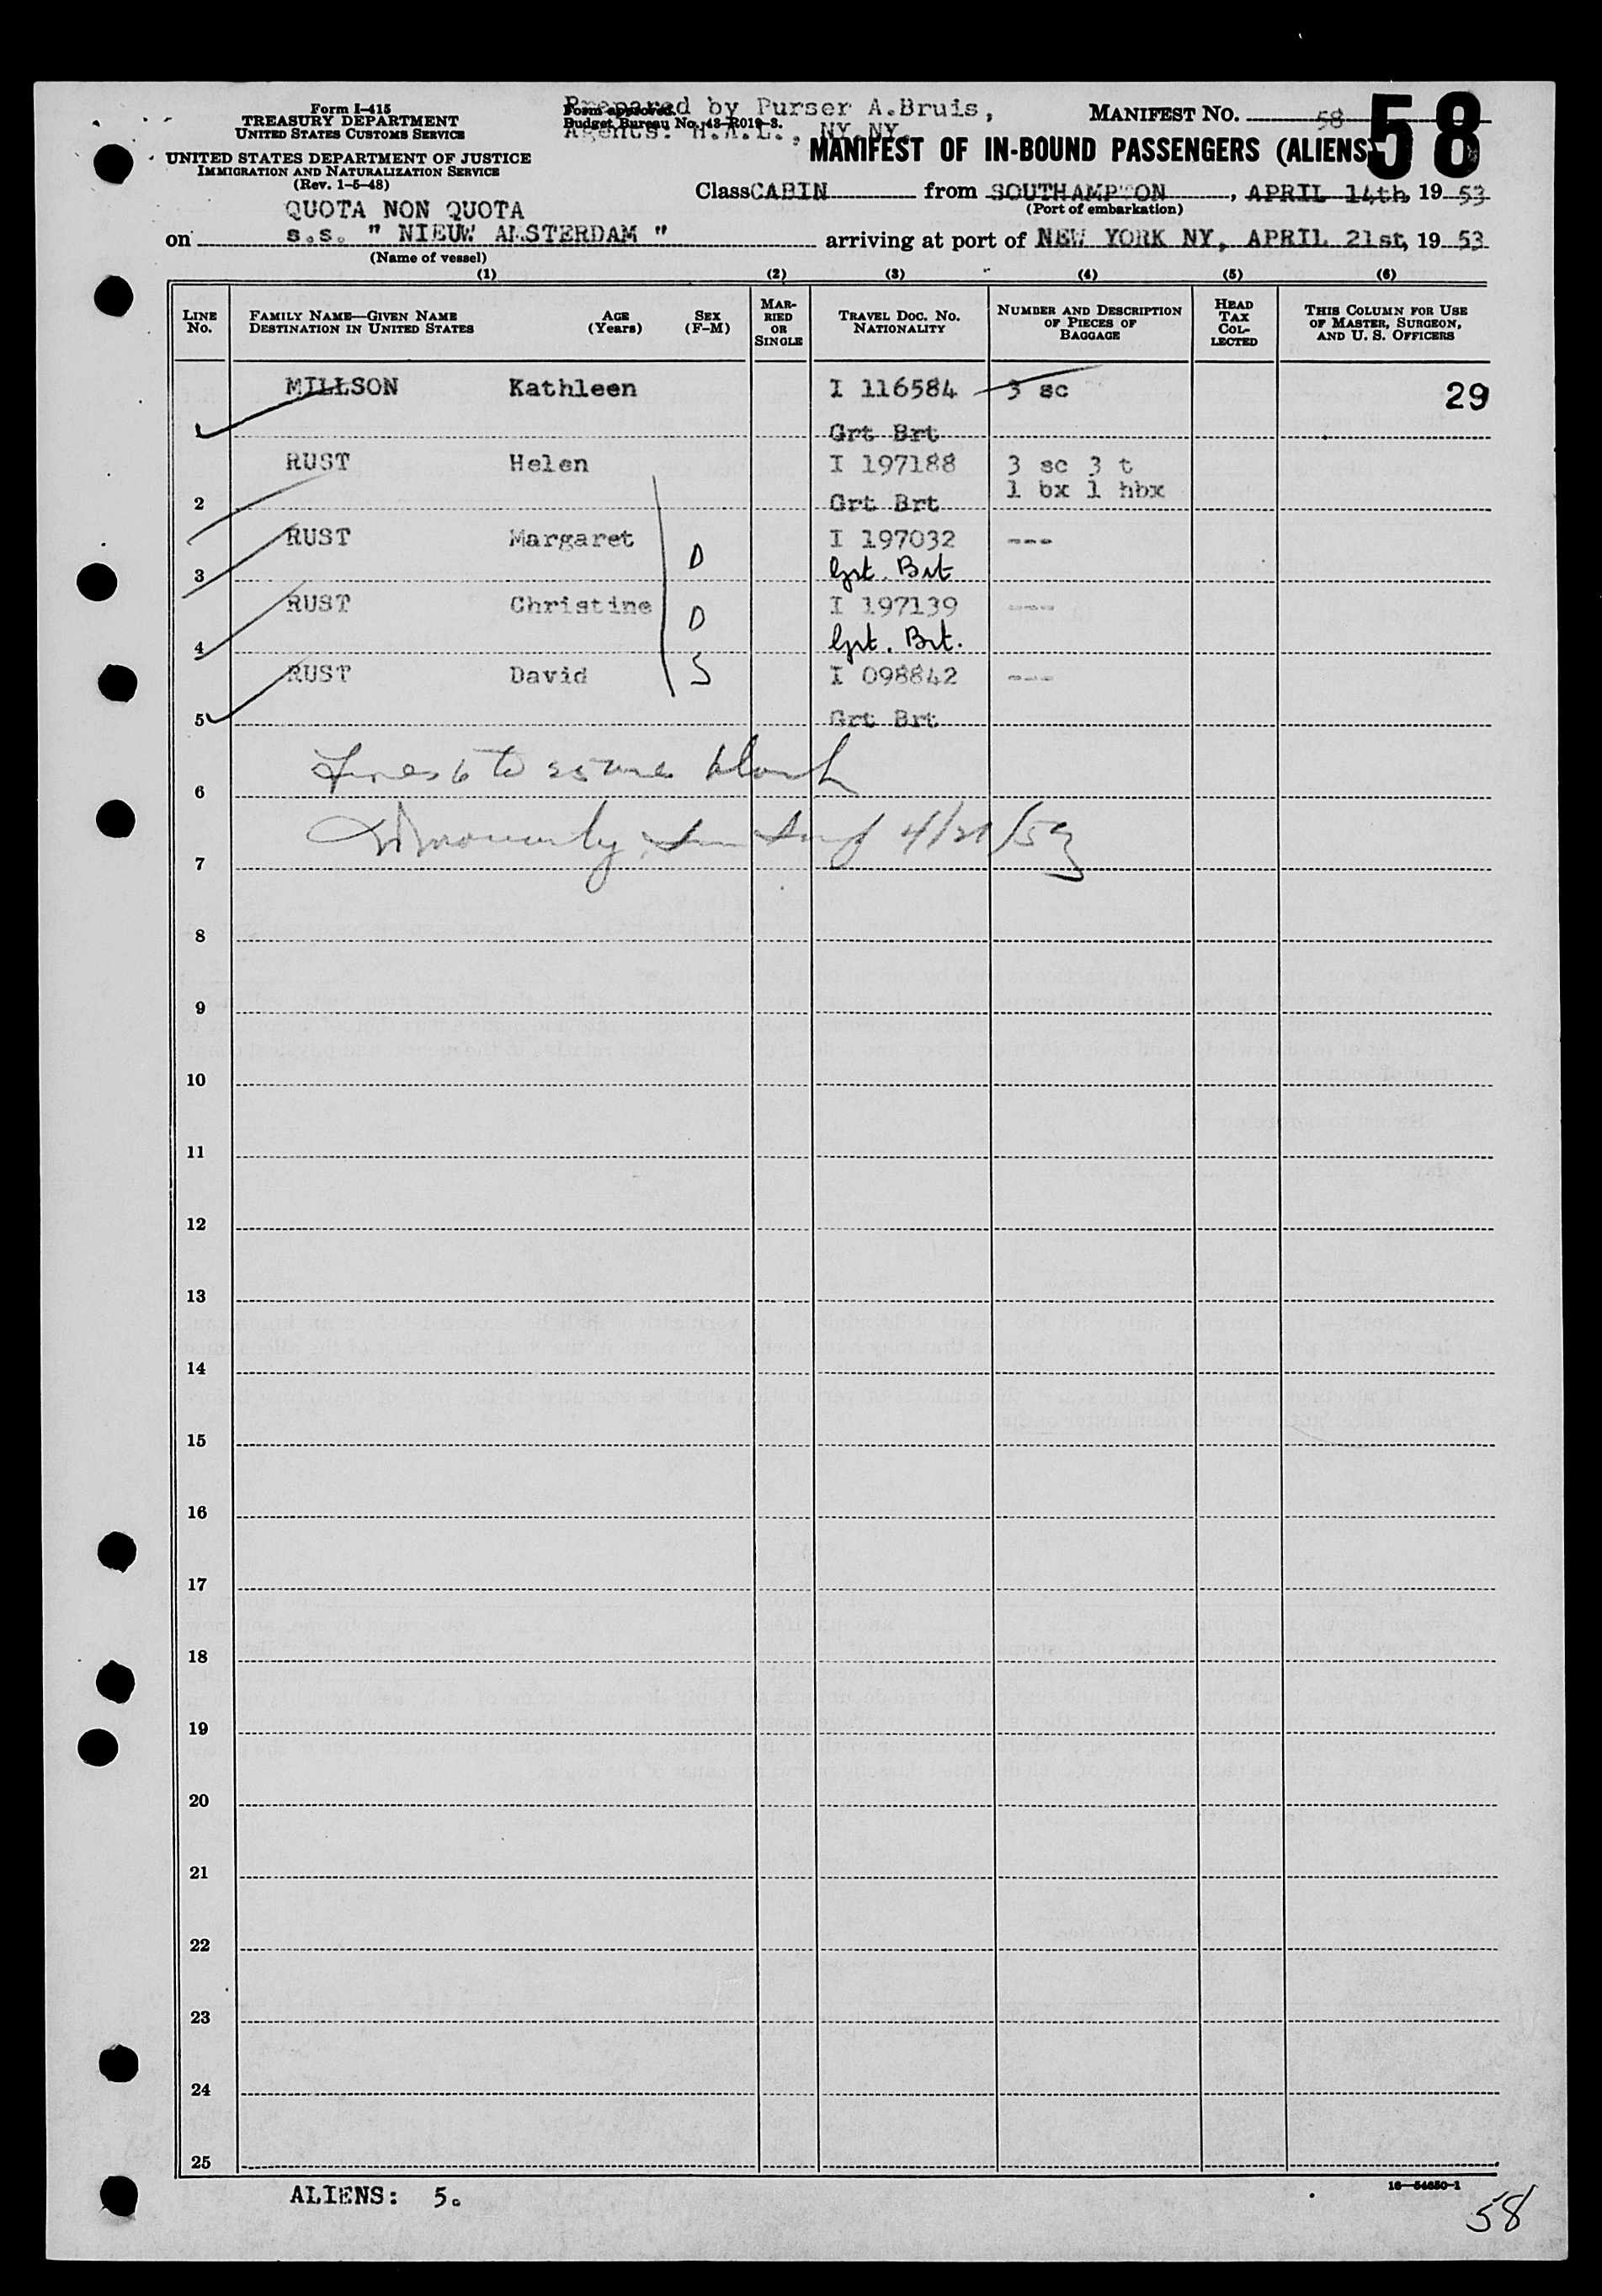 Form I-415
TREASURY DEPARTMENT
UNITED STATES CUSTOMS SERVICE
UNITED STATES DEPARTMENT OF JUSTICE
IMMIGRATION AND NATURALIZATION SERVICE
(Rev. 1-5-48)
Prepared by Purser A.Bruis,
Form approved.
Budget Bureau No. 43-R019-3.
Agents: H.A.L., NY.NY.
MANIFEST NO. 58
58
MANIFEST OF IN-BOUND PASSENGERS (ALIENS)
Class CABIN from SOUTHAMPTON, APRIL 14th, 19 53
(Port of embarkation)
QUOTA NON QUOTA
on s.s. " NIEUW AMSTERDAM " arriving at port of NEW YORK NY, APRIL 21st, 19 53
(Name of vessel)
(1) (2) (3) (4) (5) (6)
LINE No. FAMILY NAME—GIVEN NAME DESTINATION IN UNITED STATES AGE (Years) SEX (F-M) MARRIED OR SINGLE TRAVEL DOC. NO. NATIONALITY NUMBER AND DESCRIPTION OF PIECES OF BAGGAGE HEAD TAX COLLECTED THIS COLUMN FOR USE OF MASTER, SURGEON, AND U. S. OFFICERS
MILLSON Kathleen I 116584 3 sc 29
1 Grt Brt
RUST Helen I 197188 3 sc 3 t
1 bx 1 hbx
2 Grt Brt
RUST Margaret D I 197032 ---
3 Grt. Brt
RUST Christine D I 197139 ---
4 Grt. Brt.
RUST David S I 098842 ---
5 Grt Brt
Lines 6 to 25 blank
6
4/21/53
7
8
9
10
11
12
13
14
15
16
17
18
19
20
21
22
23
24
25
ALIENS: 5.
16-54650-1
58